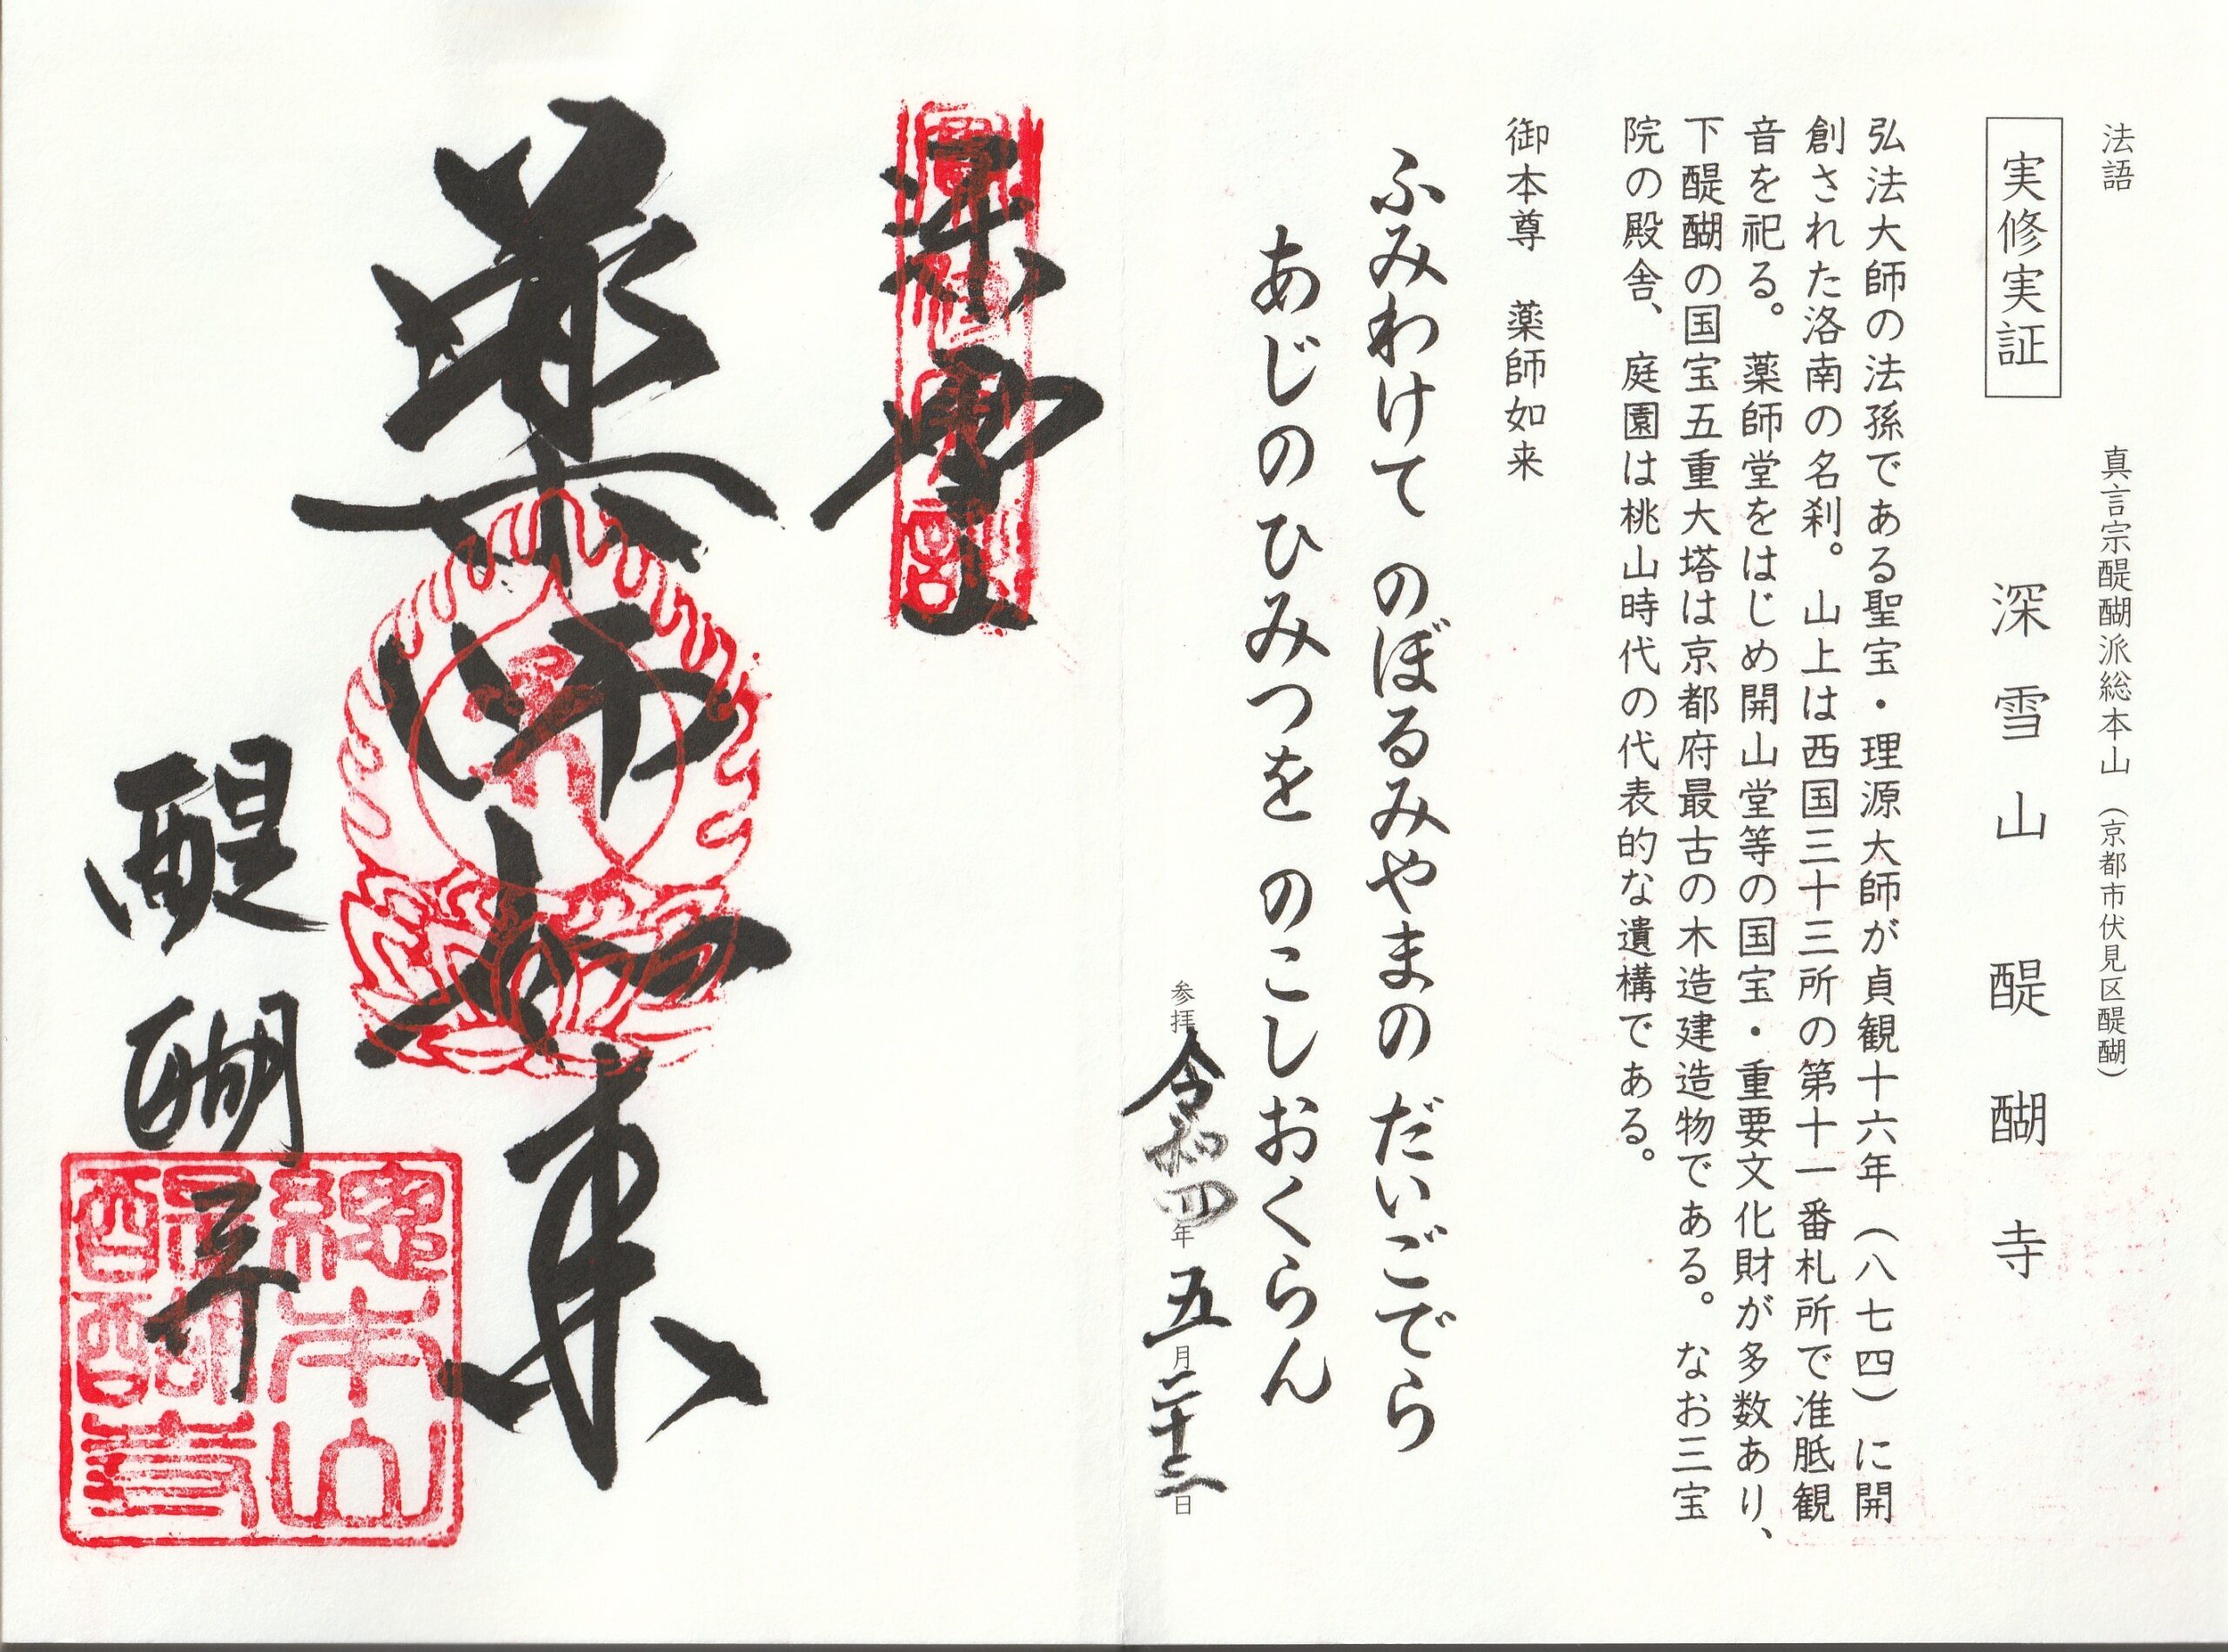 法語
実修実証
真言宗醍醐派総本山（京都市伏見区醍醐）
深雪山醍醐寺
弘法大師の法孫である聖宝・理源大師が貞観十六年（八七四）に開
創された洛南の名刹。山上は西国三十三所の第十一番札所で准胝観
音を祀る。薬師堂をはじめ開山堂等の国宝・重要文化財が多数あり、
下醍醐の国宝五重大塔は京都府最古の木造建造物である。なお三宝
院の殿舎、庭園は桃山時代の代表的な遺構である。
御本尊　薬師如来
ふみわけて のぼるみやまの だいごでら
あじのひみつを のこしおくらん
参拝 令和四年五月二十三日
深雪山
薬師如来
醍醐寺
總本山
醍醐寺